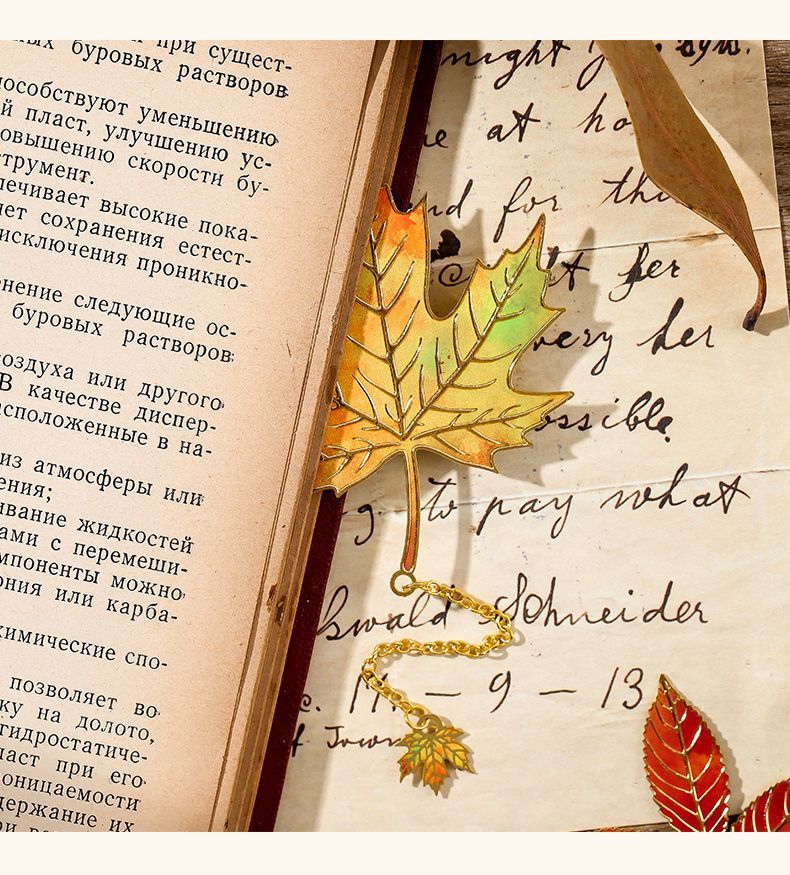 ных буровых растворов при сущест-
способствуют уменьшению
й пласт, улучшению ус-
овышению скорости бу-
струмент.
печивает высокие пока-
чет сохранения естест-
исключения проникно-
енение следующие ос-
буровых растворов
воздуха или другого
В качестве диспер-
асположенные в на-
из атмосферы или
ения;
ивание жидкостей
ами с перемеши-
мпоненты можно
ония или карба-
химические спо-
позволяет во
ку на долото,
гидростатиче-
ласт при его
оницаемости
держание их
night
at
for
her
very her
ossible.
to pay what
Schneider
11 - 9 - 13